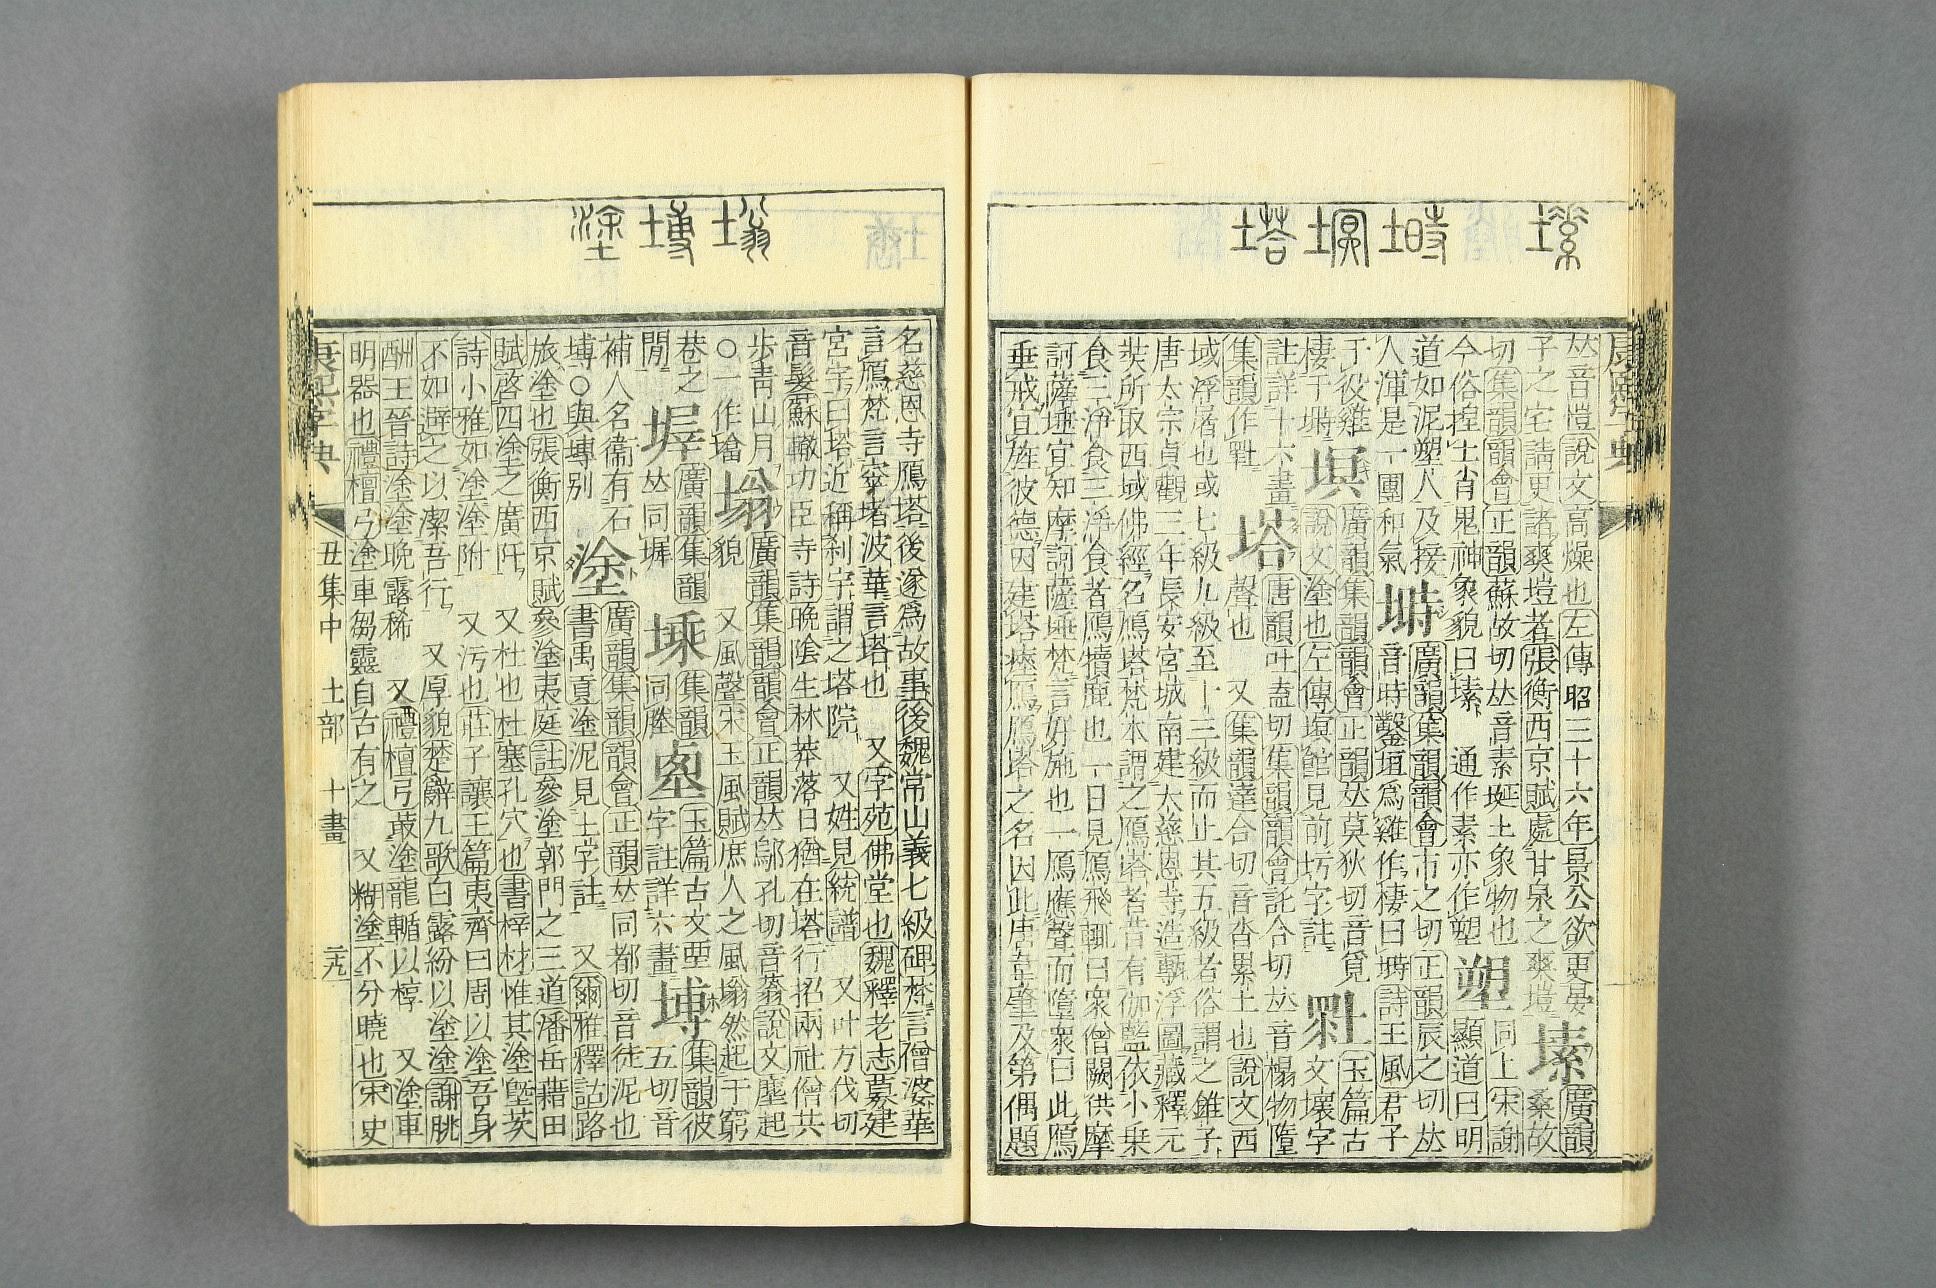 塐 塒 塓 塔
康熙字典
𠀤音愷說文高燥也左傳昭三十六年景公欲更晏 塐 廣韻
子之宅請更諸爽塏者張衡西京賦處甘泉之爽塏 桑故
切集韻韻會正韻蘇故切𠀤音素埏土象物也 塑 同上宋謝
今俗捏土肖鬼神象貌曰塐 通作素亦作塑 顯道曰明
道如泥塑人及接 塒 廣韻集韻韻會市之切正韻辰之切𠀤
人渾是一團和氣 音時鑿垣爲雞作棲曰塒詩王風君子
于役雞 塓 廣韻集韻韻會正韻𠀤莫狄切音覓 玉篇古
棲于塒 說文塗也左傳塓館見前圬字註 文壞字
註詳十六畫 塔 唐韻吐盍切集韻韻會託合切𠀤音榻物墮
集韻作 聲也 又集韻達合切音沓累土也說文西
域浮屠也或七級九級至十三級而止其五級者俗謂之錐子
唐太宗貞觀三年長安宮城南建大慈恩寺造甎浮圖藏釋元
奘所取西域佛經名鴈塔梵本謂之鴈塔者昔有伽藍依小乗
食三淨食三淨食者鴈犢鹿也一日見鴈飛輒曰衆僧闕供摩
訶薩埵宜知摩訶薩埵梵言好施也一鴈應聲而墮衆曰此鴈
垂戒宜旌彼德因建塔瘞鴈鴈塔之名因此唐韋肇及第偶題
塕 塼 塗
名慈恩寺鴈塔後遂爲故事後魏常山義七級碑梵言僧婆華
言鴈梵言窣堵波華言塔也 又字苑佛堂也魏釋老志墓建
宮宇曰塔近稱刹宇謂之塔院 又姓見統譜 又叶方伐切
音髮蘇轍功臣寺詩晚陰生林莽落日猶在塔行招兩社僧共
步靑山月 塕 廣韻集韻韻會正韻𠀤鄔孔切音蓊說文塵起
○一作塎 貌 又風聲宋玉風賦庶人之風塕然起于窮
巷之 墀 廣韻集韻 塖 集韻 玉篇古文堊 塼 集韻彼
閒 𠀤同墀 同塍 字註詳六畫 五切音
補人名衞有石 塗 廣韻集韻韻會正韻𠀤同都切音徒泥也
塼○與塼別 書禹貢塗泥見土字註 又爾雅釋詁路
旅塗也張衡西京賦參塗夷庭註參塗郭門之三道潘岳藉田
賦啓四塗之廣阡 又杜也杜塞孔穴也書梓材惟其塗墍茨
詩小雅如塗塗附 又污也莊子讓王篇夷齊曰周以塗吾身
不如避之以潔吾行 又厚貌楚辭九歌白露紛以塗塗謝朓
酬王晉詩塗塗晚露稀 又禮檀弓菆塗龍輴以椁 又塗車
明器也禮檀弓塗車芻靈自古有之 又糊塗不分曉也宋史
康熙字典 丑集中 土部 十畫 二九